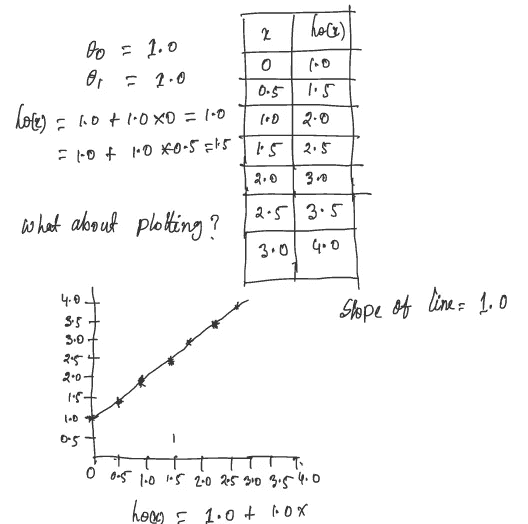 θ0 = 1.0
θ1 = 1.0
hθ(x) = 1.0 + 1.0 × 0 = 1.0
= 1.0 + 1.0 × 0.5 = 1.5
what about plotting?
x hθ(x)
0 1.0
0.5 1.5
1.0 2.0
1.5 2.5
2.0 3.0
2.5 3.5
3.0 4.0
Slope of line = 1.0
4.0
3.5
3.0
2.5
2.0
1.5
1.0
0.5
0 0.5 1.0 1.5 2.0 2.5 3.0 3.5 4.0
hθ(x) = 1.0 + 1.0x